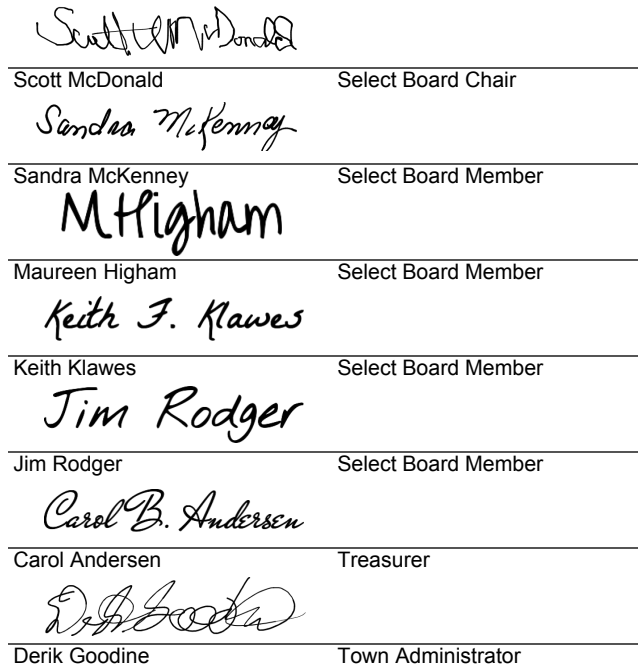 Scott McDonald
Scott McDonald Select Board Chair
Sandra McKenney
Sandra McKenney Select Board Member
MHigham
Maureen Higham Select Board Member
Keith F. Klawes
Keith Klawes Select Board Member
Jim Rodger
Jim Rodger Select Board Member
Carol B. Andersen
Carol Andersen Treasurer
Derik Goodine Town Administrator